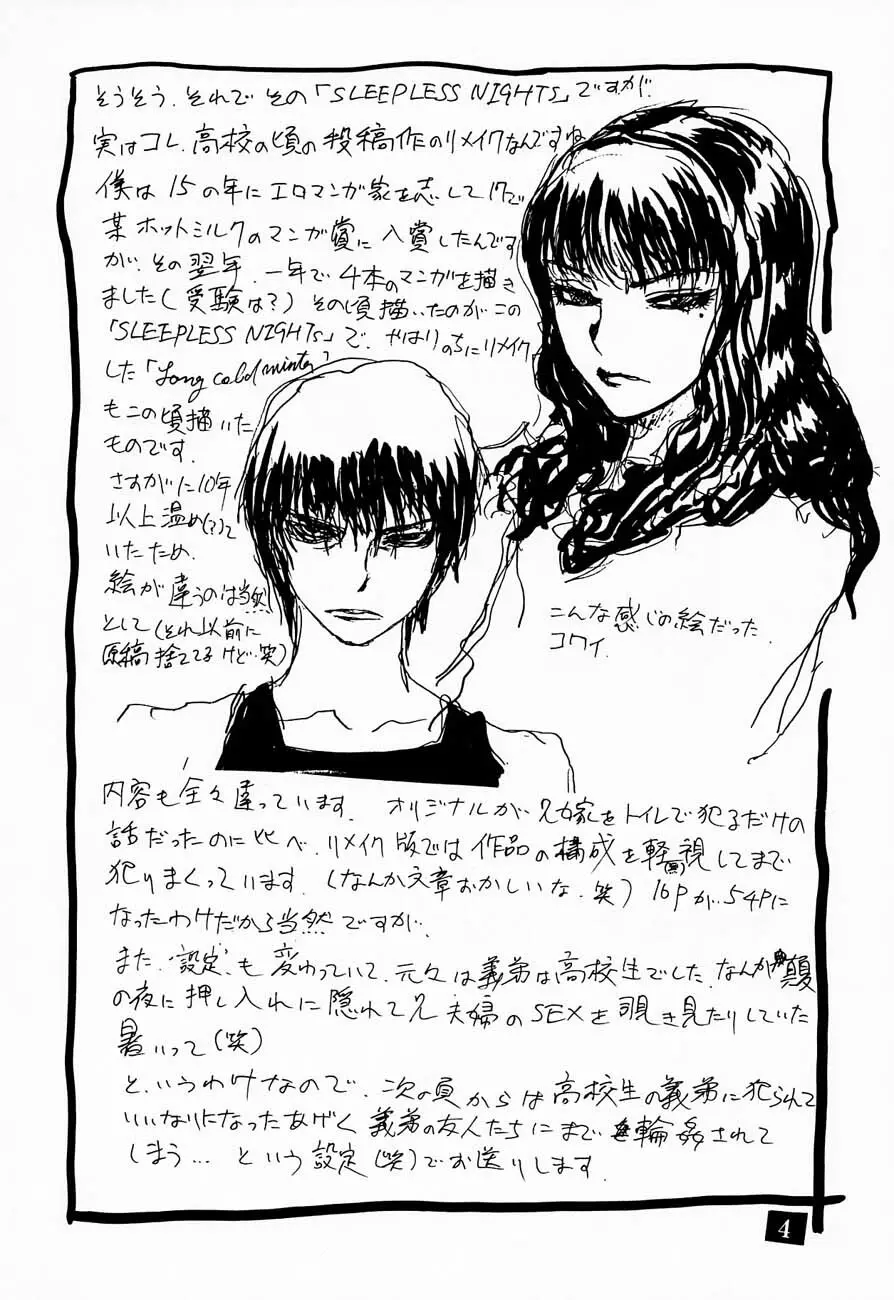 そうそう、それでその「SLEEPLESS NIGHTS」ですが、
実はコレ、高校の頃の投稿作のリメイクなんですね
僕は15の年にエロマンガ家を志して17で
某ホットミルクのマンガ賞に入賞したんです
が、その翌年、一年で4本のマンガを描き
ました(受験は?)その頃描いたのがこの
「SLEEPLESS NIGHTS」で、やはりのちにリメイク
した「Long cold winter」
もこの頃描いた
ものです。
さすがに10年
以上温め(?)て
いたため、
絵が違うのは当然
として(それ以前に
原稿捨ててるけど・笑)
こんな感じの絵だった。
コワイ。
内容も全々違っています。オリジナルが兄嫁をトイレで犯るだけの
話だったのに比べ、リメイク版では作品の構成を軽視してまで
犯りまくっています。(なんか文章おかしいな・笑)16Pが54Pに
なったわけだから当然ですが、
また、設定も変わっていて、元々は義弟は高校生でした。なんか真夏
の夜に押し入れに隠れて兄夫婦のSEXを覗き見たりしていた
暑いって(笑)
と、いうわけなので、次の頁からは高校生の義弟に犯られて
いいなりになったあげく義弟の友人たちにまで輪姦されて
しまう…という設定(笑)でお送りします。
4